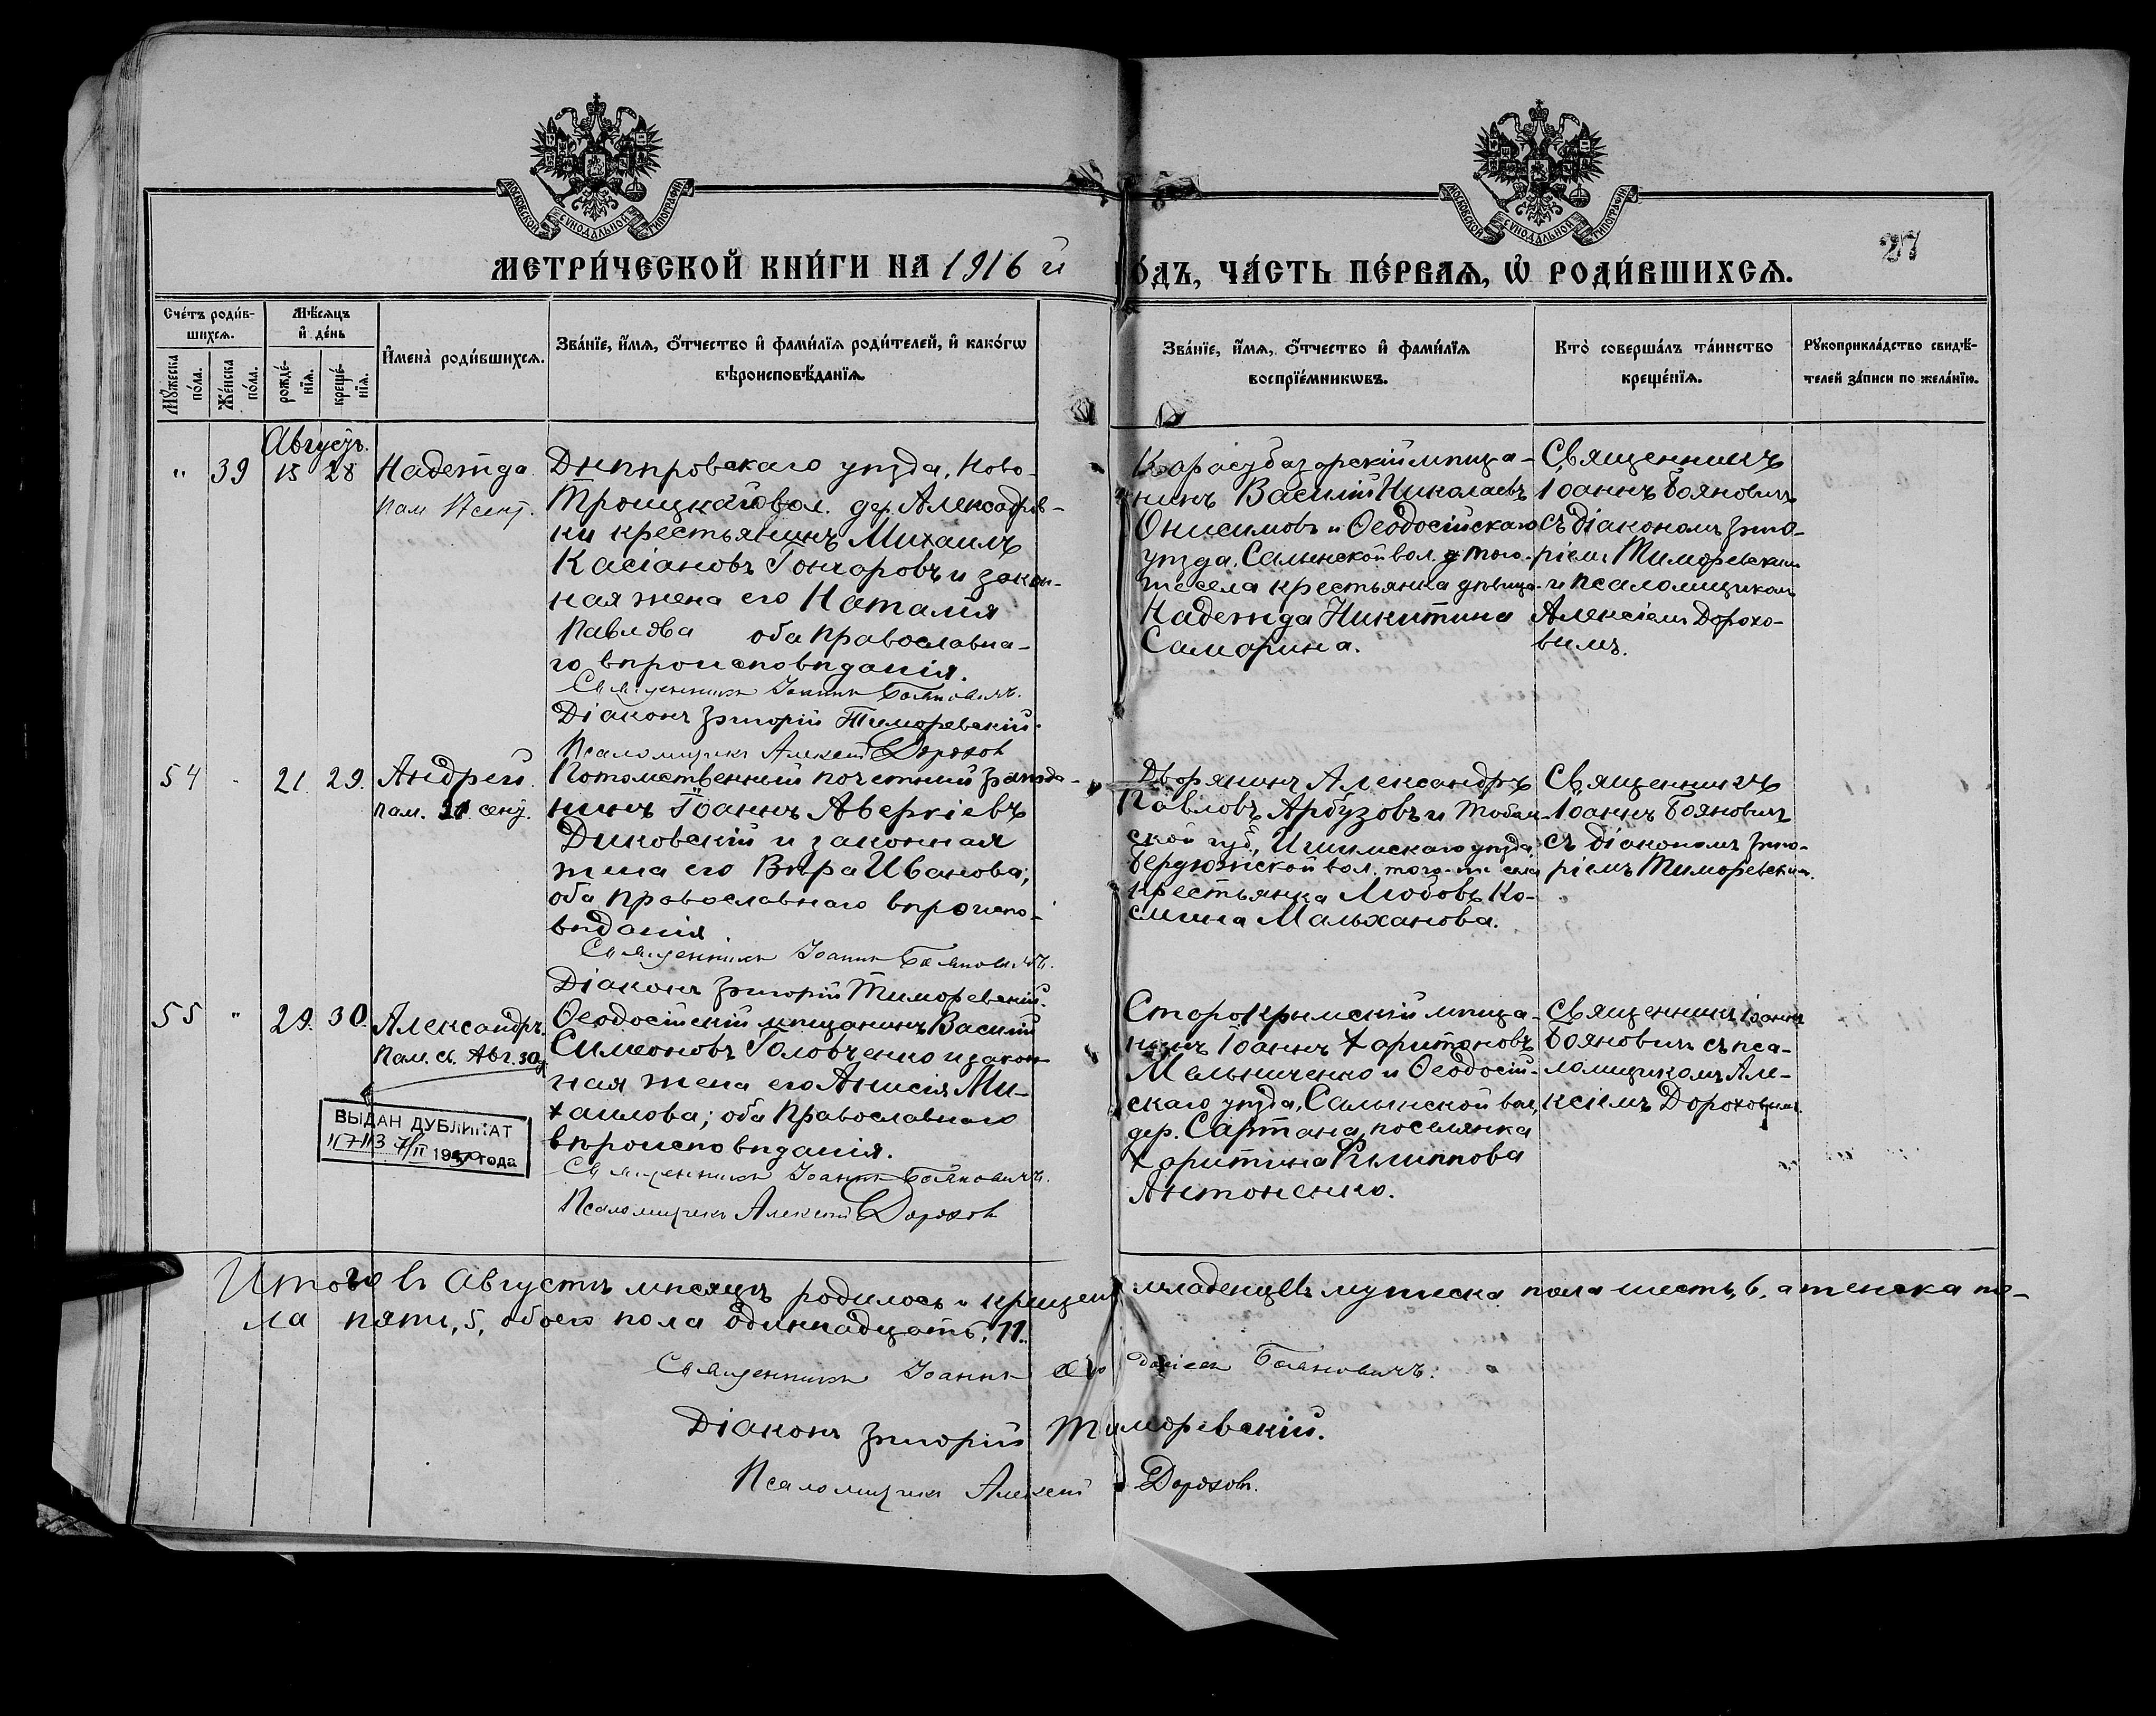 МОСКОВСКОЙ СѴНОДАЛЬНОЙ ТИПОГРАФІИ
МОСКОВСКОЙ СѴНОДАЛЬНОЙ ТИПОГРАФІИ
27
МЕТРИ́ЧЕСКОЙ КНИ́ГИ НА 1916 й
ГО́ДЪ, ЧА́СТЬ ПЕ́РВАѦ, Ѡ҆ РОДИ́ВШИХСѦ.
Сче́тъ роди́в-
шихсѧ.
Мꙋ́жеска по́ла.
Же́нска по́ла.
Мѣ́сѧцъ
и҆ де́нь
рожде́-
нїѧ.
креще́-
нїѧ.
И҆мена̀ роди́вшихсѧ.
Зва́нїе, и҆́мѧ, ѻ҆́тчество и҆ фами́лїѧ роди́телей, и҆ како́гѡ
вѣроисповѣ́данїѧ.
Зва́нїе, и҆́мѧ, ѻ҆́тчество и҆ фами́лїѧ
воспрїе́мникѡвъ.
Кто̀ соверша́лъ та́инство
креще́нїѧ.
Рꙋкоприкла́дство свидѣ́-
телей за́писи по жела́нїю.
Августъ.
" 39 15 28 Надежда
пам 17 сент.
Днѣпровскаго уѣзда, Ново-
Троицкой вол. дер. Александров-
ки крестьянинъ Михаилъ
Касіановъ Гончаровъ и закон-
ная жена его Наталія
Павлова оба православна-
го вѣроисповѣданія.
Священникъ Іоаннъ Бояновичъ.
Діаконъ Григорій Тиморевскій.
Псаломщикъ Алексій Дороховъ
Карасубазарскій мѣща-
нинъ Василій Николаевъ
Онисимовъ и Ѳеодосійскаго
уѣзда, Салынской вол. того-
же села крестьянка дѣвица
Надежда Никитина
Самарина.
Священникъ
Іоаннъ Бояновичъ
съ діакономъ Григо-
ріемъ Тиморевскимъ
и псаломщикомъ
Алексіемъ Дорохо-
вымъ.
54 - 21. 29. Андрей.
пам. 21 сент.
Потомственный почетный гражда-
нинъ Іоаннъ Аверкіевъ
Диковскій и законная
жена его Вѣра Иванова;
оба православнаго вѣроиспо-
вѣданія
Священникъ Іоаннъ Бояновичъ.
Діаконъ Григорій Тиморевскій.
Дворянинъ Александръ
Павловъ Арбузовъ и Тоболь-
ской губ., Ишимскаго уѣзда
Бердюжской вол. того-же села
крестьянка Любовь Ко-
смина Мальханова.
Священникъ
Іоаннъ Бояновичъ
съ діакономъ Григо-
ріемъ Тиморевскимъ.
55 " 29. 30. Александръ.
Пам. св. Авг. 30 д
Ѳеодосійскій мѣщанинъ Василій
Симеоновъ Головченко и закон-
ная жена его Анисія Ми-
хаилова; оба Православнаго
вѣроисповѣданія.
Священникъ Іоаннъ Бояновичъ.
Псаломщикъ Алексій Дороховъ
ВЫДАН ДУБЛИКАТ
1950 года
Старокрымскій мѣща-
нинъ Іоаннъ Харитоновъ
Мельниченко и Ѳеодосій-
скаго уѣзда, Салынской вол,
дер. Сартана, поселянка
Харитина Филиппова
Антоненко.
Священникъ Іоаннъ
Бояновичъ съ пса-
ломщикомъ Але-
ксіемъ Дороховымъ.
Итого въ Августѣ мѣсяцѣ родилось и крещено младенцевъ мужеска пола шесть, 6, а женска по-
ла пять, 5, обоего пола одиннадцать, 11.
Священникъ Іоаннъ Бояновичъ.
Діаконъ Григорій Тиморевскій.
Псаломщикъ Алексій Дороховъ.